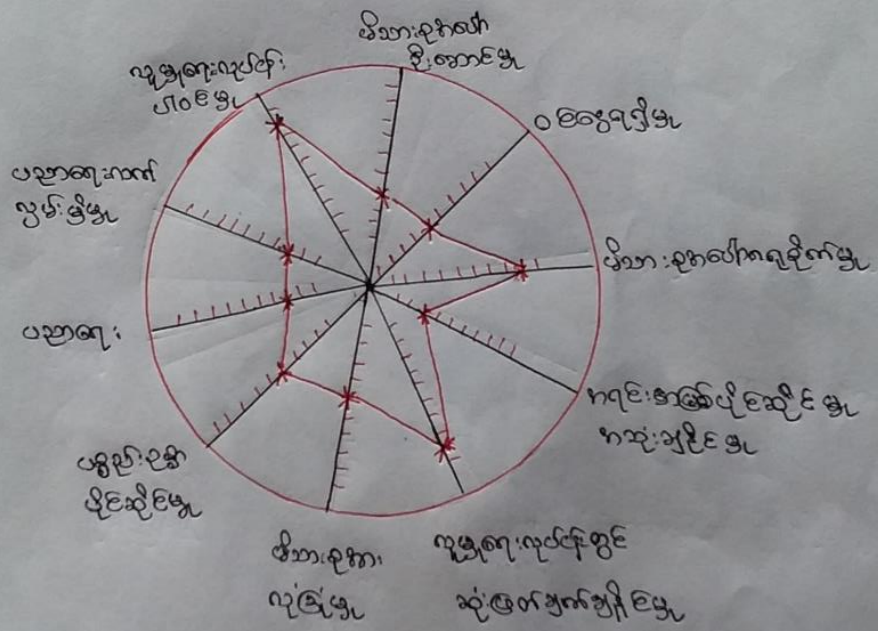 မိသားစုအပေါ်
ဦးဆောင်မှု
ဝင်ငွေရရှိမှု
မိသားစုအပေါ်ဂရုစိုက်မှု
အရင်းအမြစ်ပိုင်ဆိုင်မှု
အသုံးချနိုင်မှု
လူမှုရေးလုပ်ငန်းတွင်
ဆုံးဖြတ်ချက်ချနိုင်မှု
မိသားစုအား
လုံခြုံမှု
ပစ္စည်းဥစ္စာ
ပိုင်ဆိုင်မှု
ပညာရေး
ပညာရေးလက်
လှမ်းမှီမှု
လူမှုရေးလုပ်ငန်း
ပါဝင်မှု